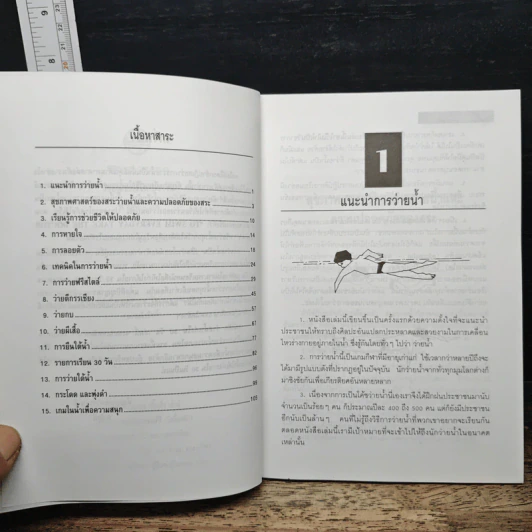 เนื้อหาสาระ
1. แนะนำการว่ายน้ำ 1
2. สุขภาพศาสตร์ของสระว่ายน้ำและความปลอดภัยของสระ 3
3. เรียนรู้การช่วยชีวิตให้ปลอดภัย 10
4. การหายใจ 14
5. การลอยตัว 18
6. เทคนิคในการว่ายน้ำ
7. การว่ายฟรีสไตล์ 29
8. ว่ายตีกรรเชียง 45
9. ว่ายกบ 57
10. ว่ายผีเสื้อ
11. การยืนใต้น้ำ
12. รายการเรียน 30 วัน
13. การว่ายใต้น้ำ
14. กระโดด และพุ่งดำ
15. เกมในน้ำเพื่อความสนุก 105
1
แนะนำการว่ายน้ำ
1. หนังสือเล่มนี้เขียนขึ้นเป็นครั้งแรกด้วยความตั้งใจที่จะแนะนำ
ประชาชนให้ทราบถึงศิลปะอันแปลกประหลาดและสวยงามในการเคลื่อน
ไหวร่างกายอยู่ภายในน้ำ ซึ่งรู้กันโดยทั่วๆ ไปว่า ว่ายน้ำ
2. การว่ายน้ำนี้เป็นเกมกีฬาที่มีอายุเก่าแก่ ใช้เวลากว่าหลายปีถึงจะ
ได้มามีรูปแบบดังที่ปรากฏอยู่ในปัจจุบัน นักว่ายน้ำจากทั่วทุกมุมโลกต่างก็
มาชิงชัยกันเพื่อเกียรติยศอันหลายหลาก
3. เนื่องจากการเป็นโค้ชว่ายน้ำนี่เองเราจึงได้ฝึกฝนประชาชนมานับ
จำนวนเป็นร้อยๆ คน ก็ประมาณปีละ 400 ถึง 500 คน แต่ก็ยังมีประชาชน
อีกนับเป็นล้านๆ คนที่ไม่รู้ถึงวิธีการว่ายน้ำที่พวกเขาอยากจะเรียนกัน
ตลอดหนังสือเล่มนี้เรามีเป้าหมายที่จะเข้าไปให้ถึงนักว่ายน้ำในอนาคต
เหล่านั้น